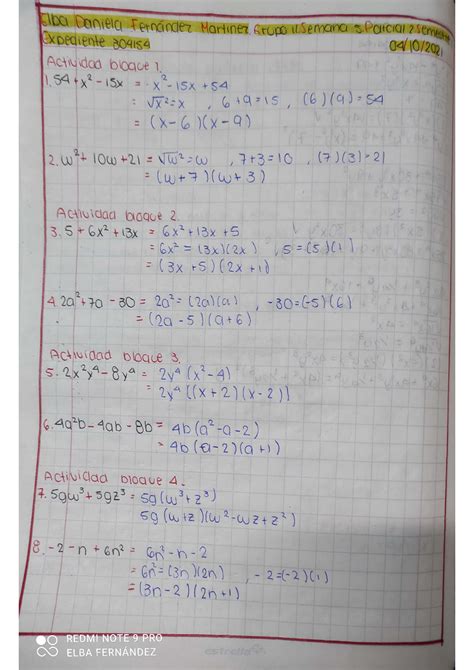 Elba Daniela Fernández Martínez Grupo 11 Semana 3 Parcial 2 semestre
Expediente 304154 04/10/2021
Actividad bloque 1.
1. 54 + x² - 15x = x² - 15x + 54
= √x² = x , 6+9=15 , (6)(9) = 54
= (x-6)(x-9)
2. w² + 10w + 21 = √w² = w , 7+3=10 , (7)(3)=21
= (w+7)(w+3)
Actividad bloque 2.
3. 5 + 6x² + 13x = 6x² + 13x + 5
= 6x² = (3x)(2x) , 5 = (5)(1)
= (3x+5)(2x+1)
4. 2a² + 7a - 30 = 2a² = (2a)(a) , -30 = (-5)(6)
= (2a-5)(a+6)
Actividad bloque 3.
5. 2x²y⁴ - 8y⁴ = 2y⁴ (x²-4)
= 2y⁴ [(x+2)(x-2)]
6. 4a²b - 4ab - 8b = 4b(a²-a-2)
= 4b(a-2)(a+1)
Actividad bloque 4.
7. 5gw³ + 5gz³ = 5g(w³+z³)
5g(w+z)(w²-wz+z²)
8. -2 - n + 6n² = 6n² - n - 2
= 6n² = (3n)(2n) , -2 = (-2)(1)
= (3n-2)(2n+1)
estrella
REDMI NOTE 9 PRO
ELBA FERNÁNDEZ